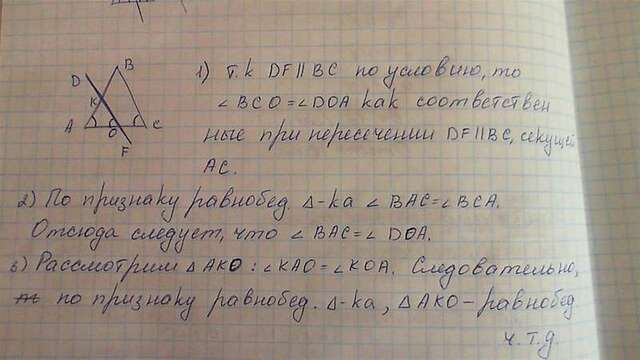 B
D
K
A
O
C
F
1) Т.к DF || BC по условию, то
∠BCO = ∠DOA как соответствен
ные при пересечении DF || BC, секущей
AC.
2) По признаку равнобед. Δ-ка ∠ BAC = ∠ BCA.
Отсюда следует, что ∠ BAC = ∠ DOA.
3) Рассмотрим Δ AKO : ∠KAO = ∠KOA. Следовательно,
по признаку равнобед. Δ-ка, Δ AKO – равнобед
ч.т.д.